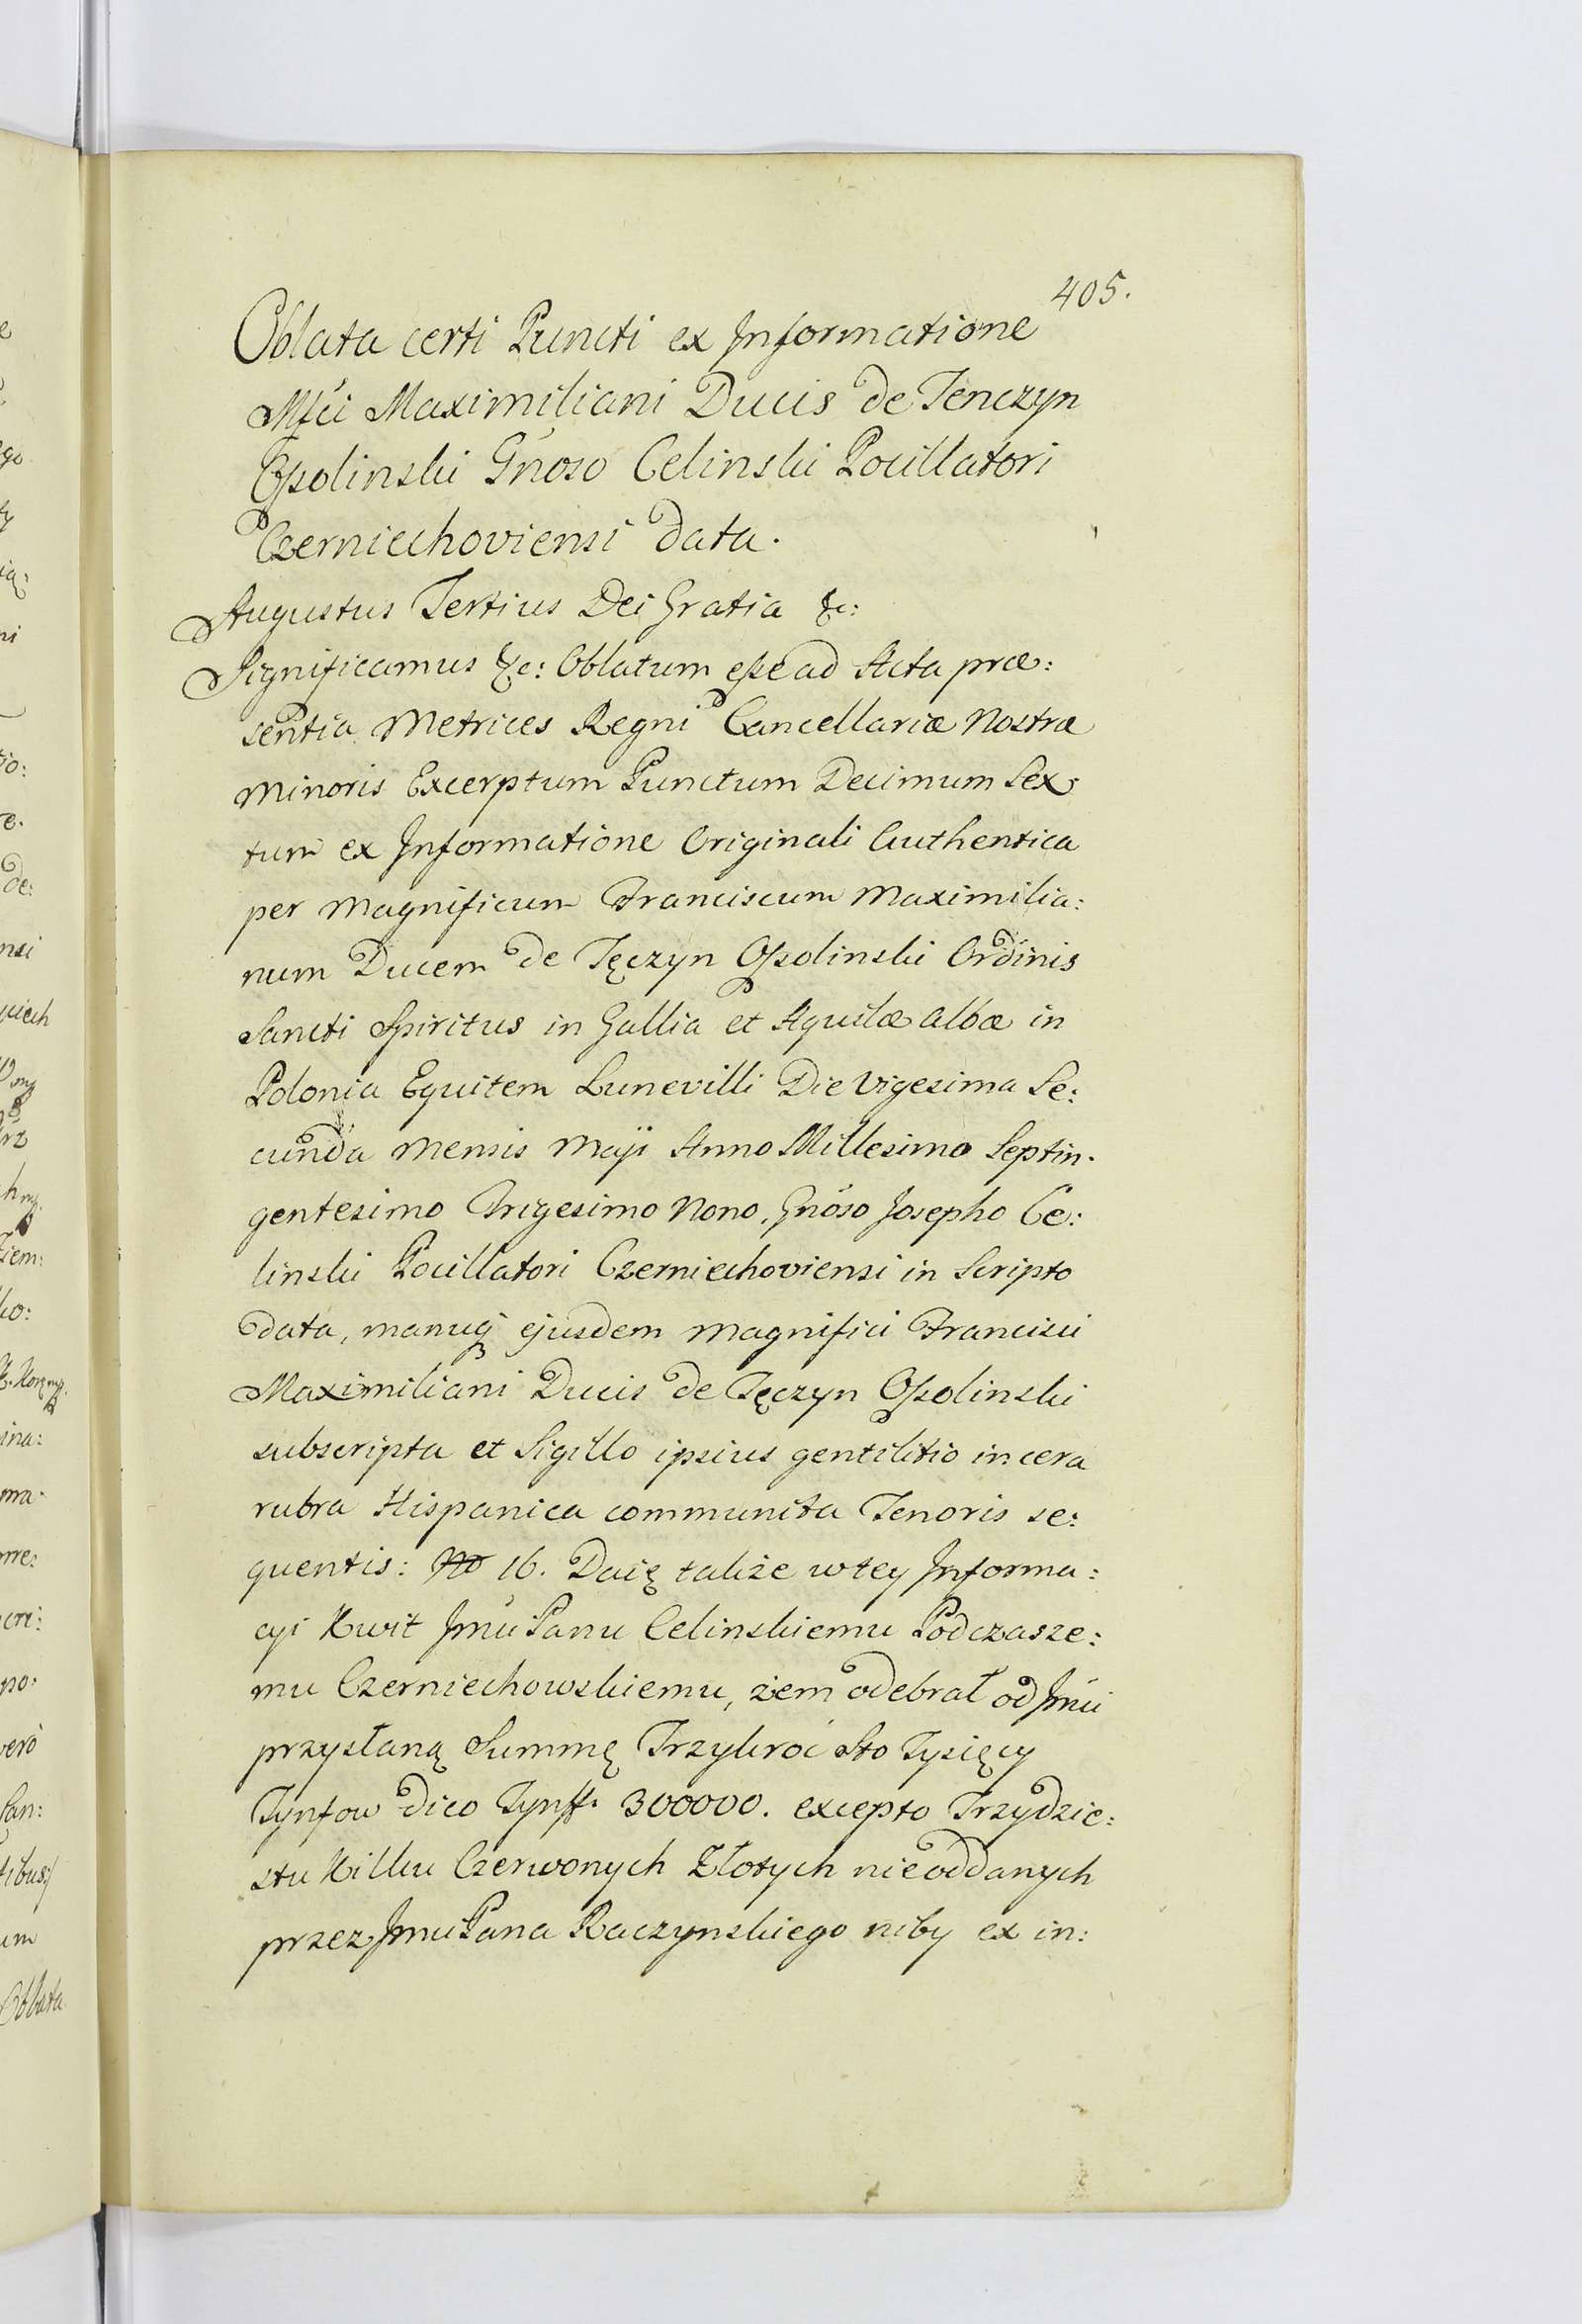 405.
Oblata certi Puncti ex Informatione
Mfci Maximiliani Ducis de Tenczyn
Ossolinski Gnoso Celinski Pocillatori
Czerniechoviensi data.
Augustus Tertius Dei Gratia &c:
Significamus &c: Oblatum esse ad Acta præ:
sentia Metrices Regni Cancellariæ Nostræ
Minoris Excerptum Punctum Decimum Sex
tum ex Informatione Originali Authentica
per Magnificum Franciscum Maximilia:
num Ducem de Tęczyn Ossolinski Ordinis
Sancti Spiritus in Gallia et Aquilæ albæ in
Polonia Equitem Lunevilli Die Vigesima Se:
cunda Mensis Maji Anno Millesimo Septin.
gentesimo Trigesimo Nono, Gnoso Josepho Ce:
linski Pocillatori Czerniechoviensi in Scripto
data, manuq ejusdem Magnifici Francisci
Maximiliani Ducis de Tęczyn Ossolinski
subscripta et Sigillo ipsius gentilitio in cera
rubra Hispanica communita Tenoris se:
quentis: No 16. Daię także wtey Informa:
cyi Kwit Jmci Panu Celinskiemu Podczasze:
mu Czerniechowskiemu, żem odebrał od Jmci
przysłaną Summę Trzykroć Sto Tysięcy
Tynfow dico Tynff. 300000. excepto Trzydzie:
stu Kilku Czerwonych Złotych nieoddanych
przez Jmci Pana Raczynskiego niby ex in: